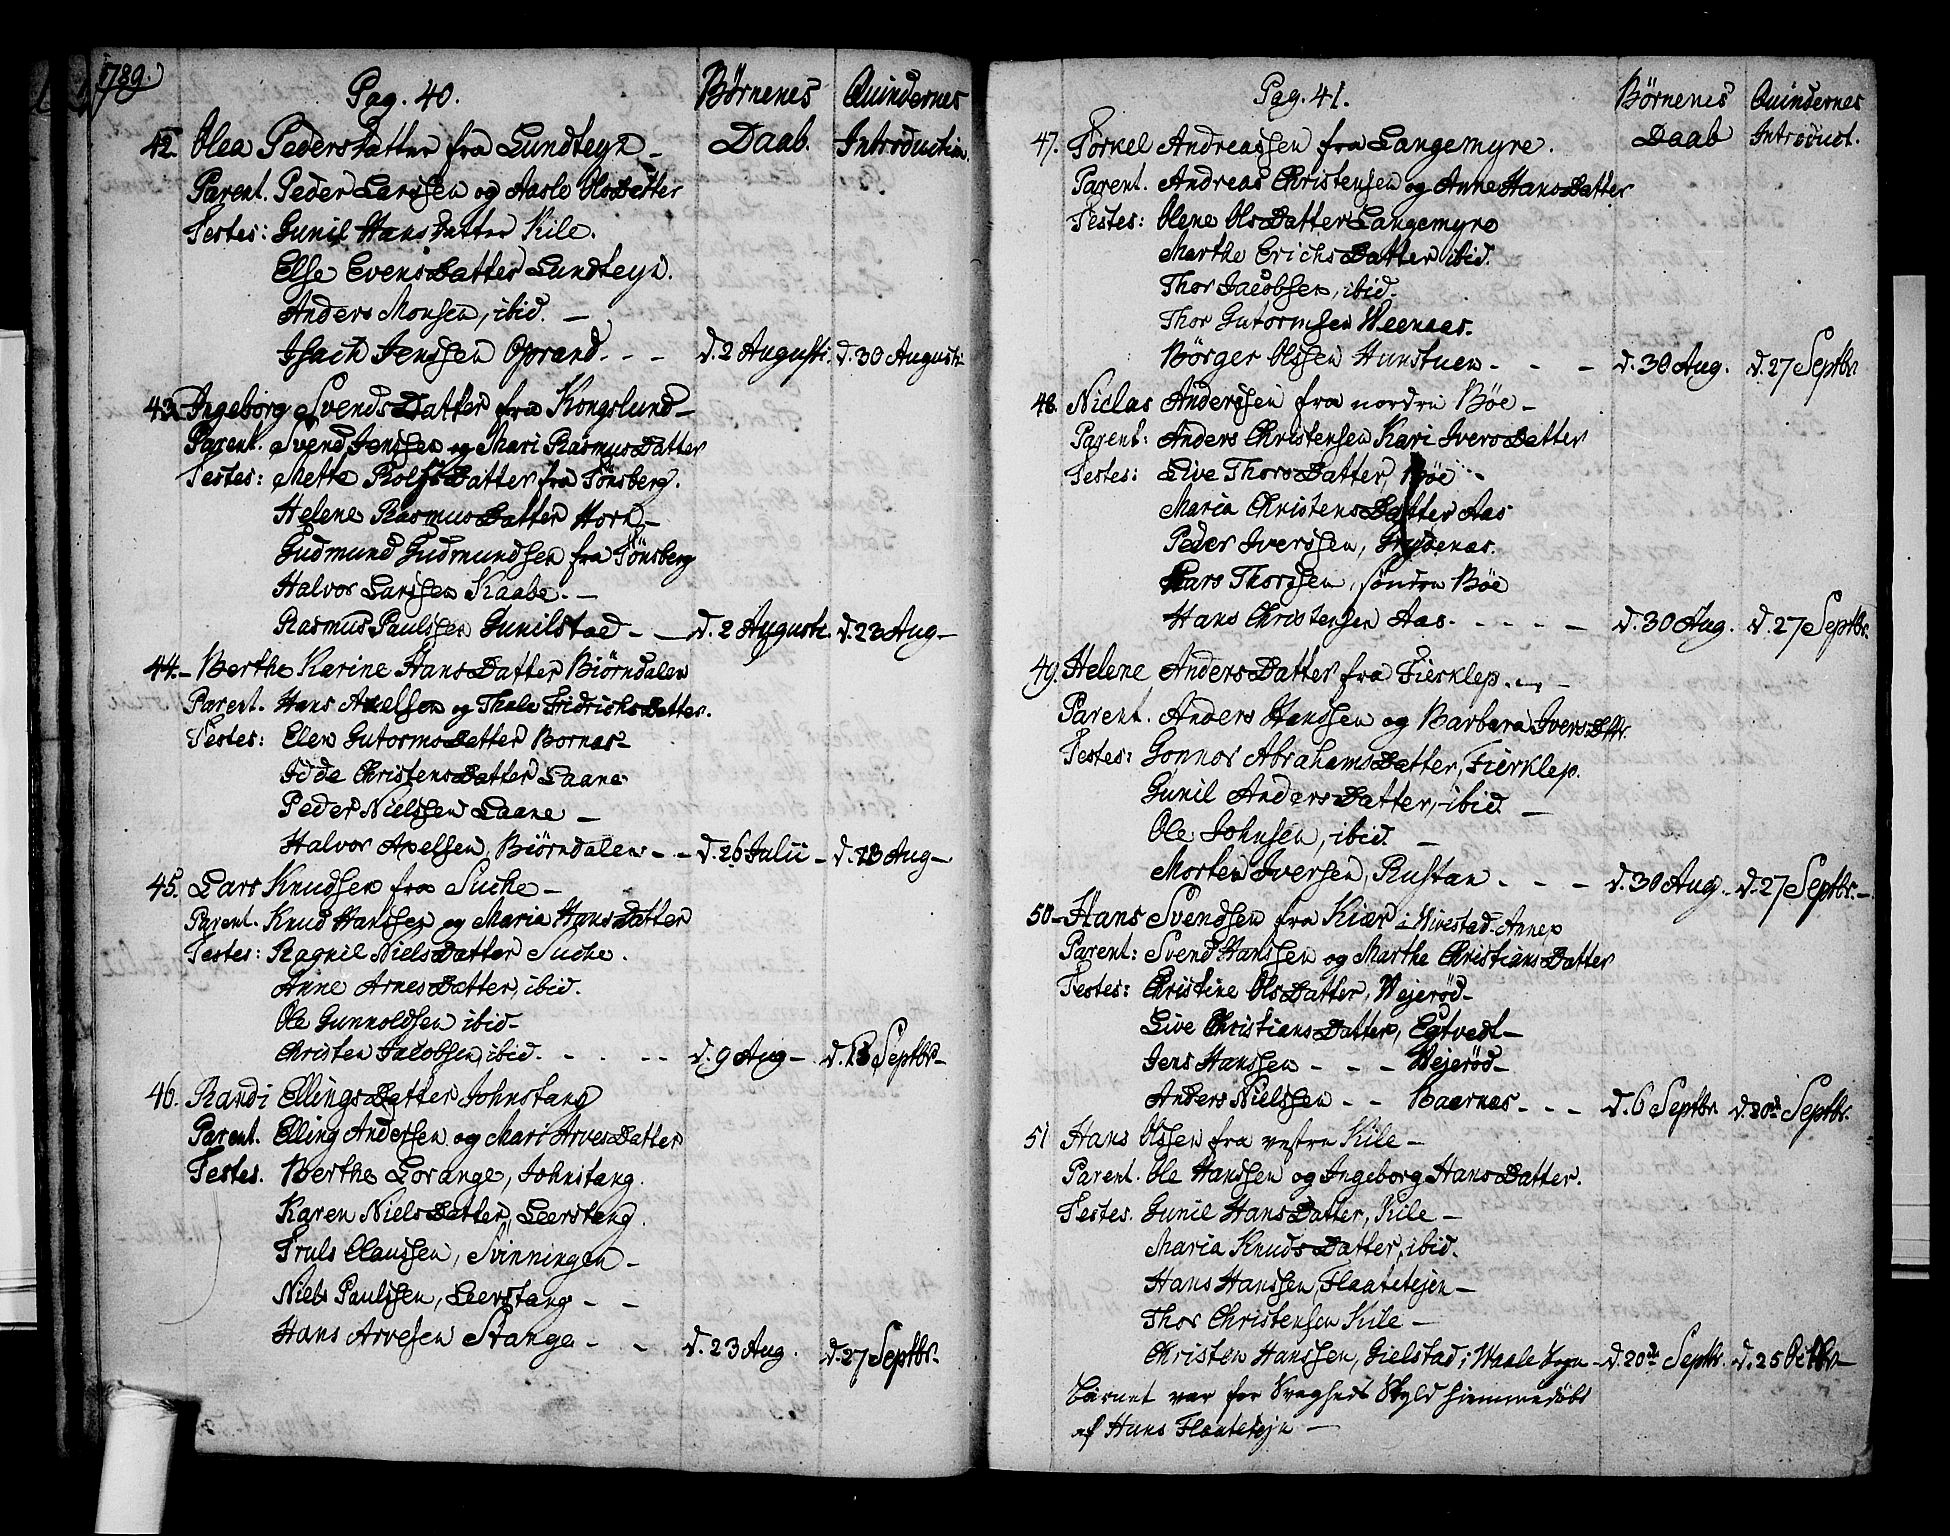 1789.
Pag. 40.
Børnenes Daab.
Quindernes Introduction.
42. Olea PedersDatter fra Lundteyn -
Parent. Peder Larssen og Aasle OlsDatter
Testes: Gunil HansDatter Kile.
Else EvensDatter Lundteyn.
Anders Monsen, ibid. -
Isach Jenssen Oprand. - - d. 2 Augusti. d. 30 Augusti
43. Ingeborg SvendsDatter fra Kongslund -
Parent. Svend Jenssen og Mari RasmusDatter
Testes: Mette RolfsDatter fra Tönsberg.
Helene RasmusDatter Horn -
Gudmund Gudmundsen fra Tönsberg
Halvor Larssen Kaabe. -
Rasmus Paulssen Gunilstad - - d. 2 Augusti. d. 23 Aug -
44. - Berthe Karine HansDatter Biörndalen
Parent. Hans Axelsen og Thale FridrichsDatter.
Testes: Elen GutormsDatter Bornas -
Idde ChristensDatter Laane
Peder Nielssen Laane -
Halvor Axelsen, Biörndalen - - d. 26 Julii - d. 23 Aug -
45. Lars Knudsen fra Suche -
Parent. Knud Hanssen og Maria HansDatter
Testes: Ragnil NielsDatter Suche.
Anne ArnesDatter, ibid.
Ole Gunnoldsen ibid -
Christen Jacobsen, ibid. - - - - d. 9 Aug - d. 13 Septbr -
46. Randi EllingsDatter Johnstang
Parent. Elling Andersen og Mari ArvesDatter
Testes. Berthe Lorange, Johnstang.
Karen NielsDatter, Leerstang.
Truls Claussen, Svinningen -
Niels Paulssen, Leerstang - -
Hans Arvesen Stange - - d. 23 Aug. d. 27 Septbr.
Pag. 41.
Børnenes Daab
Quindernes Introduct.
47. Torkel Andreassen fra Langemyre.
Parent. Andreas Christensen og Anne HansDatter
Testes: Olene OlsDatter Langemyre
Marthe ErichsDatter ibid.
Thor Jacobsen, ibid.
Thor Gutormsen Weenaas.
Börger Olssen Hunstuen - - - d. 30 Aug. d. 27 Septbr
48. Niclas Anderssen fra nordre Böe -
Parent: Anders Christensen Kari IversDatter
Testes: Live ThorsDatter, Böe -
Maria ChristensDatter Aas
Peder Iverssen, Grydenas.
Lars Thorssen, söndre Böe
Hans Christensen Aas. - - - - d. 30 Aug. d. 27 Septbr.
49. Helene AndersDatter fra Fierklep. - -
Parent. Anders Hanssen og Barbara IversDttr.
Testes: Gonnor AbrahamsDatter, Fierklep.
Gunil AndersDatter, ibid. -
Ole Johnsen, ibid. -
Morten Iversen, Rustan - - - d. 30 Aug. - d. 27 Septbr. -
50 - Hans Svendsen fra Kiær i Wivestad Annex
Parent: Svend Hanssen og Marthe ChristiansDatter
Testes: Christine OlsDatter, Wejeröd -
Live ChristiansDatter, Egtvedt -
Jens Hanssen - - - Wejeröd -
Anders Nielssen - - Baarnes - - - d. 6 Septbr. d. 20de Septbr.
51 Hans Olssen fra vestre Kile -
Parent. Ole Hanssen og Ingeborg HansDatter.
Testes. Gunil HansDatter, Kile -
Maria KnudsDatter, ibid.
Hans Hanssen, Flaatetejen -
Thor Christensen Kile -
Christen Hanssen, Gielstad i Waale Sogn - d. 20de Septbr. d. 25 Octbr -
Barnet var for Svagheds Skyld hiemmedöbt
af Hans Flaatetejn -